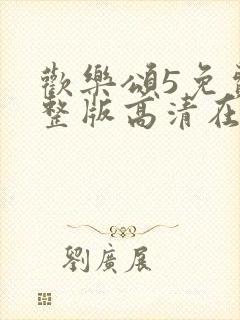 歡樂頌5免
整版高清在
劉廣展